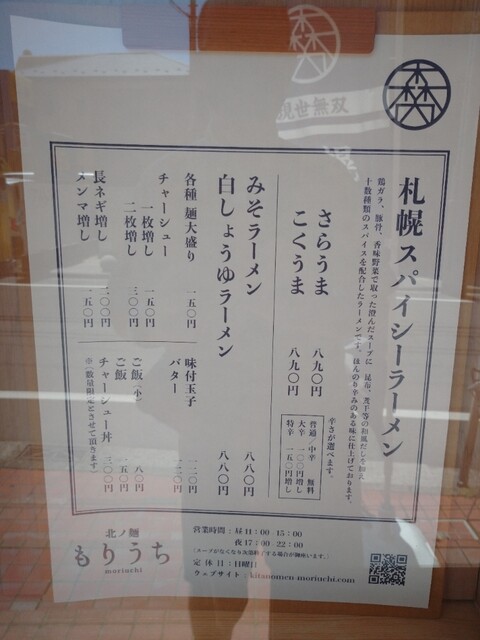 札幌スパイシーラーメン
鶏ガラ、豚骨、香味野菜で取った澄んだスープに
十数種類のスパイスを配合したラーメンです。ほんのり辛みのある味に仕上げております。
さらうま 八九〇円
こくうま 八九〇円
辛さが選べます。
普通/中辛 無料
大辛 一〇〇円増し
特辛 一五〇円増し
みそラーメン 八八〇円
白しょうゆラーメン 八八〇円
各種 麺大盛り 一五〇円
チャーシュー
一枚増し 一五〇円
二枚増し 三〇〇円
長ネギ増し 一〇〇円
メンマ増し 一五〇円
味付玉子 一二〇円
バター 一二〇円
ご飯(小) 八〇円
ご飯 一五〇円
チャーシュー丼 三〇〇円
※(数量限定とさせて頂きます)
北ノ麺
もりうち
moriuchi
営業時間:昼11:00 15:00
夜17:00-22:00
(スープがなくなり次第終了する場合が御座います。)
定休日:日曜日
ウェブサイト:kitanomen-moriuchi.com